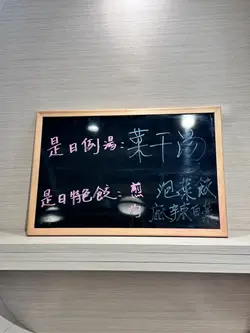 是日例湯：菜干汤
是日特色餃：煎 泡菜餃
麻辣